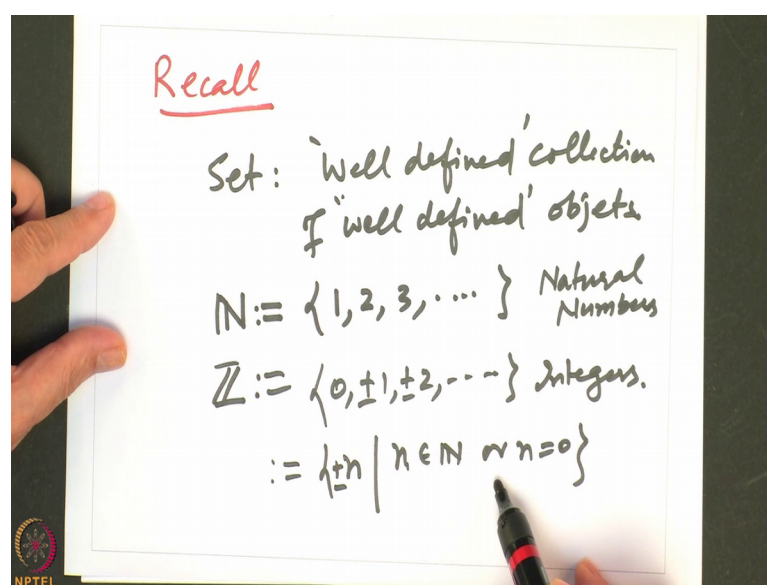 Recall
Set: 'Well defined' collection
of 'well defined' objets.
ℕ := {1, 2, 3, ....} Natural Numbers
ℤ := {0, ±1, ±2, ---} Integers.
:= {±n | n ∈ ℕ or n=0}
NPTEL